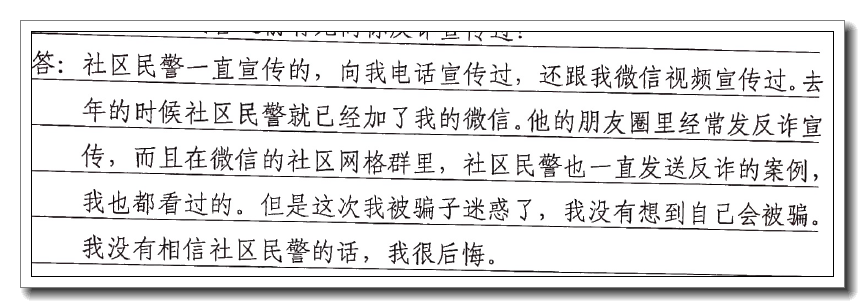 答：社区民警一直宣传的，向我电话宣传过，还跟我微信视频宣传过。去
年的时候社区民警就已经加了我的微信。他的朋友圈里经常发反诈宣
传，而且在微信的社区网格群里，社区民警也一直发送反诈的案例，
我也都看过的。但是这次我被骗子迷惑了，我没有想到自己会被骗。
我没有相信社区民警的话，我很后悔。